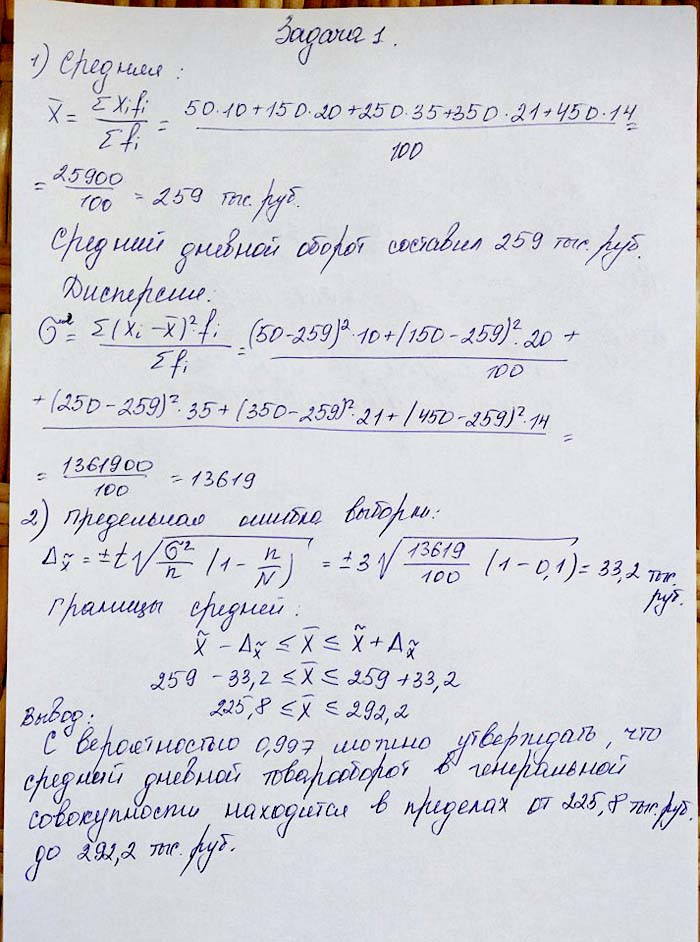 Задача 1.
1) Средняя:
x̄ = Σxifi / Σfi = (50·10+150·20+250·35+350·21+450·14) / 100 =
= 25900 / 100 = 259 тыс. руб.
Средний дневной оборот составил 259 тыс. руб.
Дисперсия:
σ² = Σ(xi – x̄)² fi / Σfi = (50-259)²·10+(150-259)²·20 + / 100
+(250-259)²·35+(350-259)²·21+(450-259)²·14 =
= 1361900 / 100 = 13619
2) Предельная ошибка выборки:
Δx̃ = ±t√(σ²/n (1 - n/N)) = ±3√(13619/100 (1-0,1)) = 33,2 тыс. руб.
Границы средней:
x̃ - Δx̃ ≤ x̄ ≤ x̃ + Δx̃
259 - 33,2 ≤ x̄ ≤ 259 + 33,2
225,8 ≤ x̄ ≤ 292,2
Вывод:
С вероятностью 0,997 можно утверждать, что
средний дневной товарооборот в генеральной
совокупности находится в пределах от 225,8 тыс. руб.
до 292,2 тыс. руб.